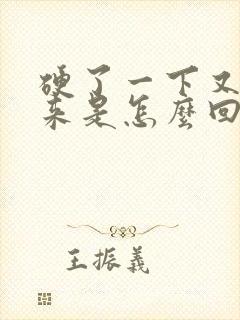 硬了一下又
来是怎麼回
王振義